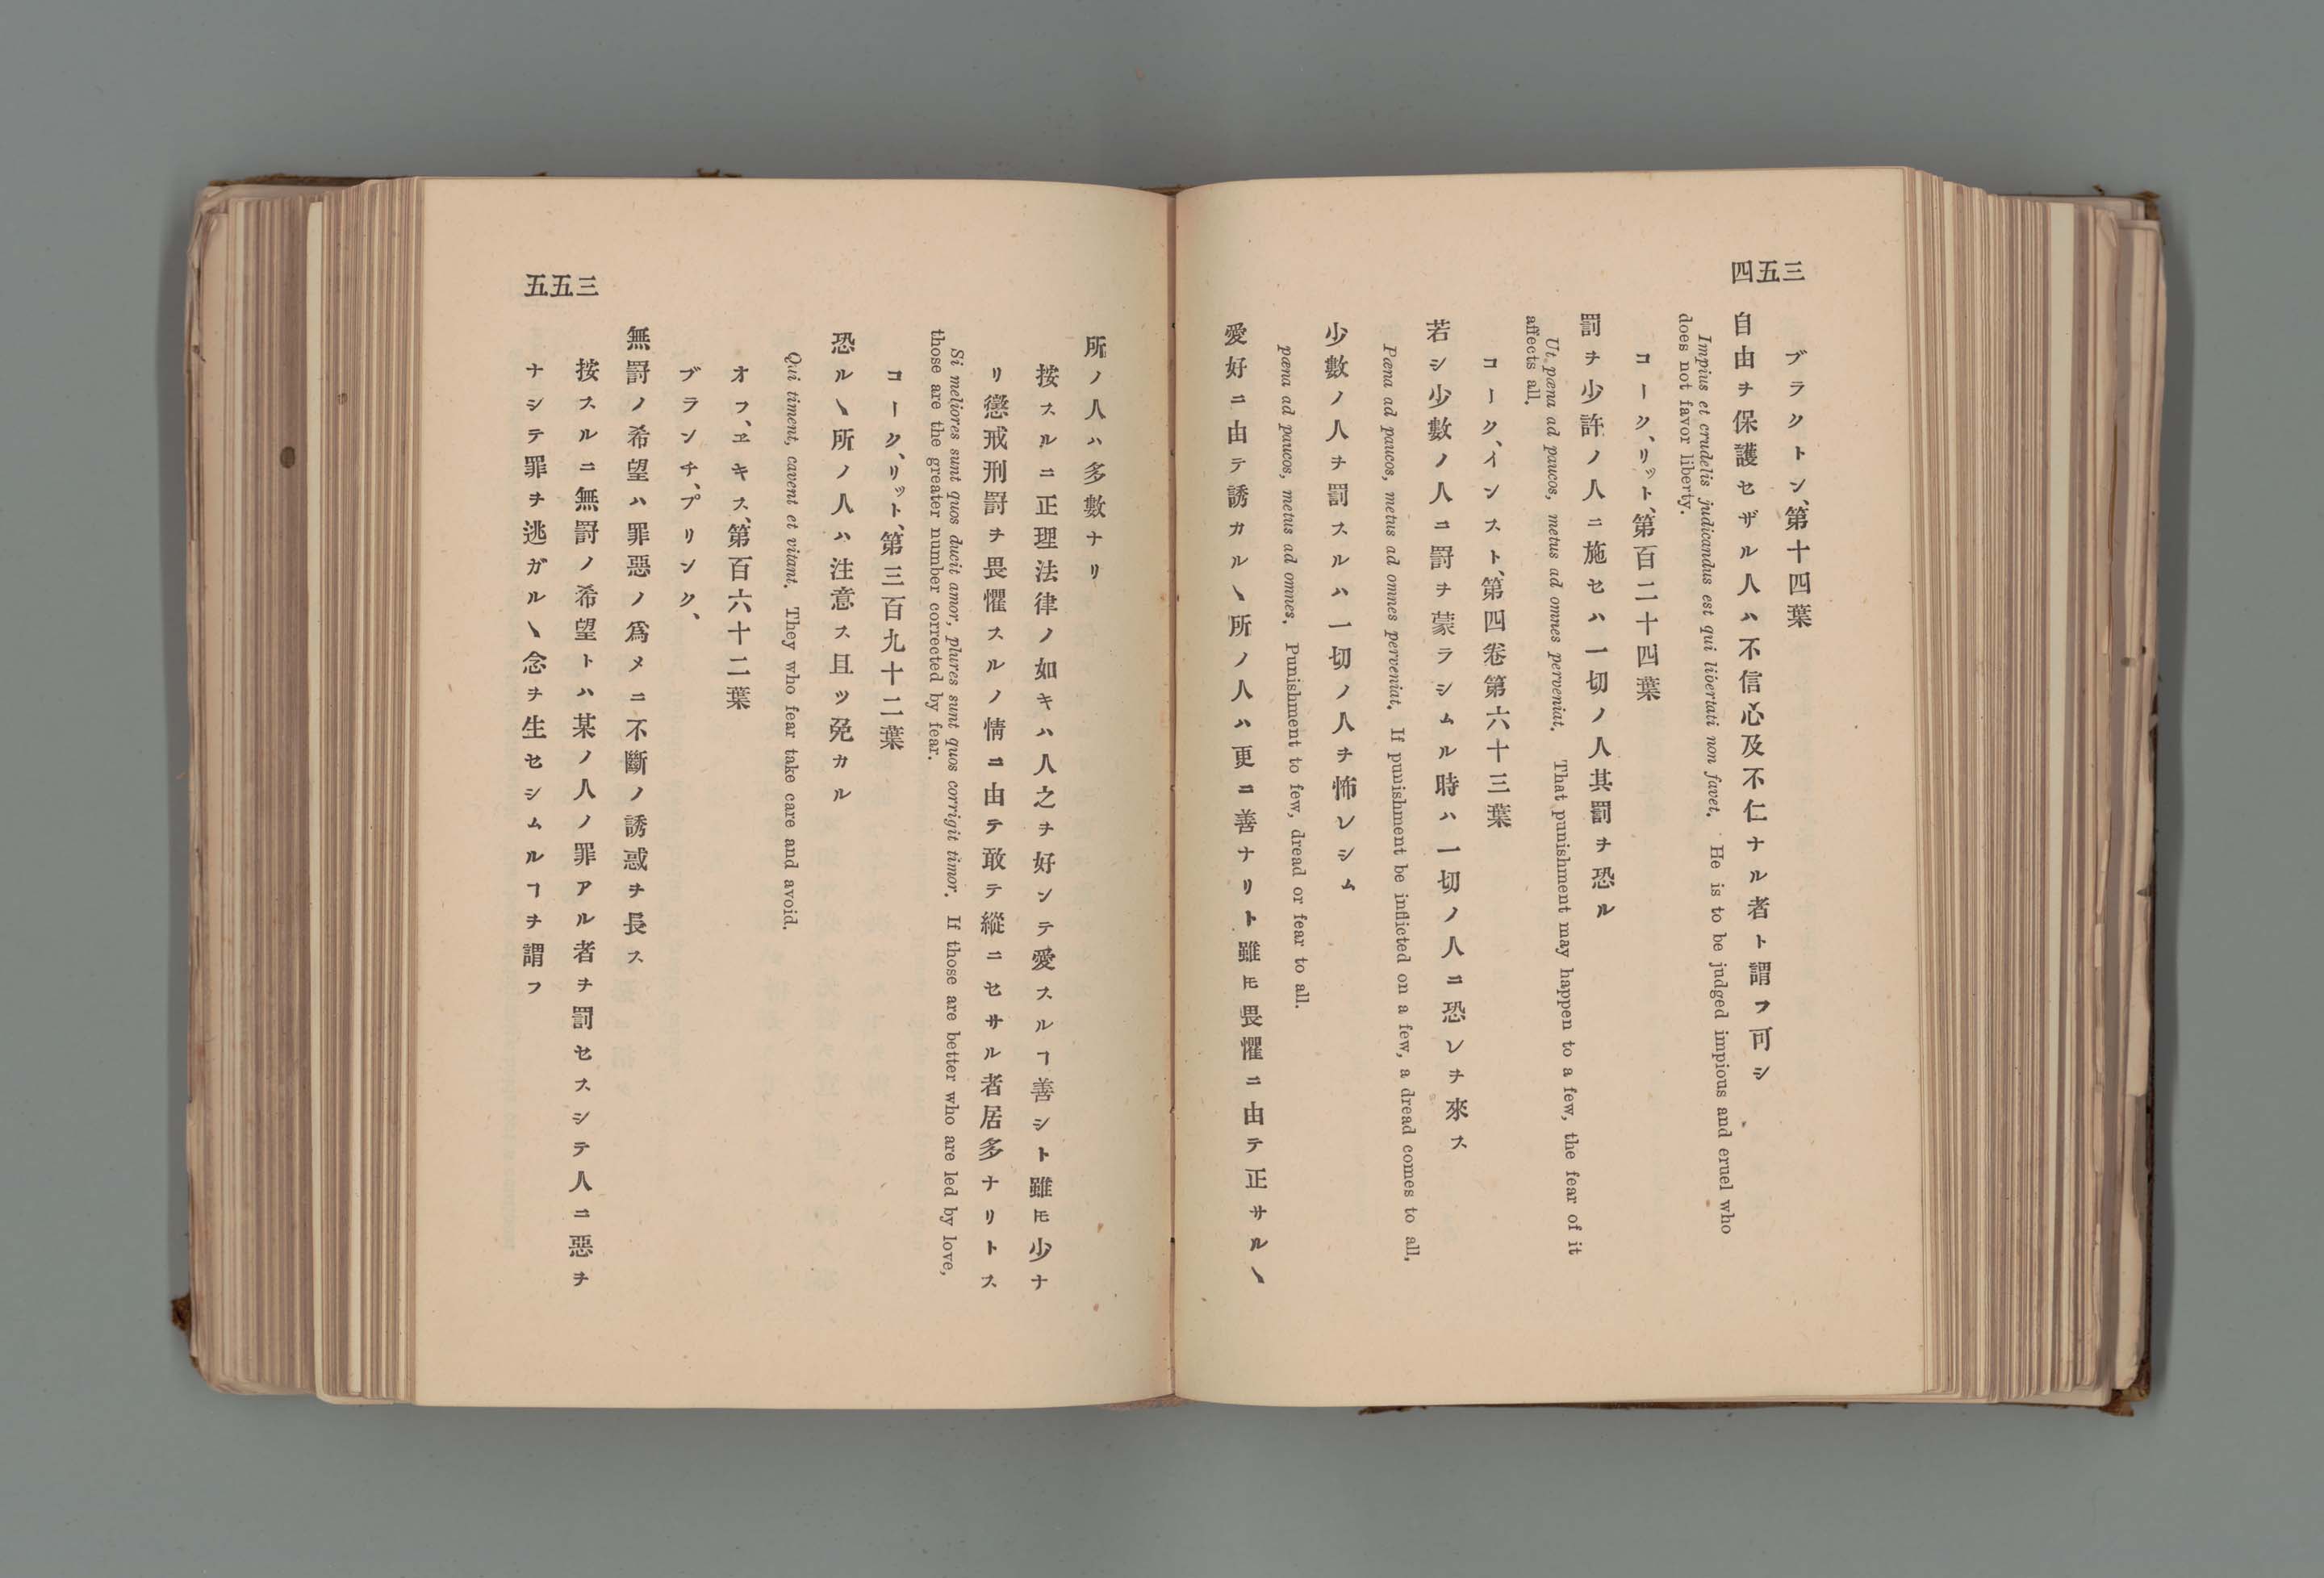 四五三
ブラクトン、第十四葉
自由ヲ保護セザル人ハ不信心及不仁ナル者ト謂フ可シ
Impius et crudelis judicandus est qui libertati non favet. He is to be judged impious and eruel who
does not favor liberty.
コーク、リット、第百二十四葉
罰ヲ少許ノ人ニ施セハ一切ノ人其罰ヲ恐ル
Ut pæna ad paucos, metus ad omnes perveniat. That punishment may happen to a few, the fear of it
affects all.
コーク、インスト、第四卷第六十三葉
若シ少數ノ人ニ罰ヲ蒙ラシムル時ハ一切ノ人ニ恐レヲ來ス
Pæna ad paucos, metus ad omnes perveniat. If punishment be inflicted on a few, a dread comes to all,
少數ノ人ヲ罰スルハ一切ノ人ヲ怖レシム
pæna ad paucos, metus ad omnes. Punishment to few, dread or fear to all.
愛好ニ由テ誘カルヽ所ノ人ハ更ニ善ナリト雖𪜈畏懼ニ由テ正サルヽ
五五三
所ノ人ハ多數ナリ
按スルニ正理法律ノ如キハ人之ヲ好ンテ愛スルヿ善シト雖𪜈少ナ
リ懲戒刑罰ヲ畏懼スルノ情ニ由テ敢テ縱ニセサル者居多ナリトス
Si meliores sunt quos ducit amor, plures sunt quos corrigit timor. If those are better who are led by love,
those are the greater number corrected by fear.
コーク、リット、第三百九十二葉
恐ルヽ所ノ人ハ注意ス且ツ免カル
Qui timent, cavent et vitant. They who fear take care and avoid.
オフ、ヱキス、第百六十二葉
ブランチ、プリンク、
無罰ノ希望ハ罪惡ノ爲メニ不斷ノ誘惑ヲ長ス
按スルニ無罰ノ希望トハ某ノ人ノ罪アル者ヲ罰セスシテ人ニ惡ヲ
ナシテ罪ヲ逃ガルヽ念ヲ生セシムルヿヲ謂フ